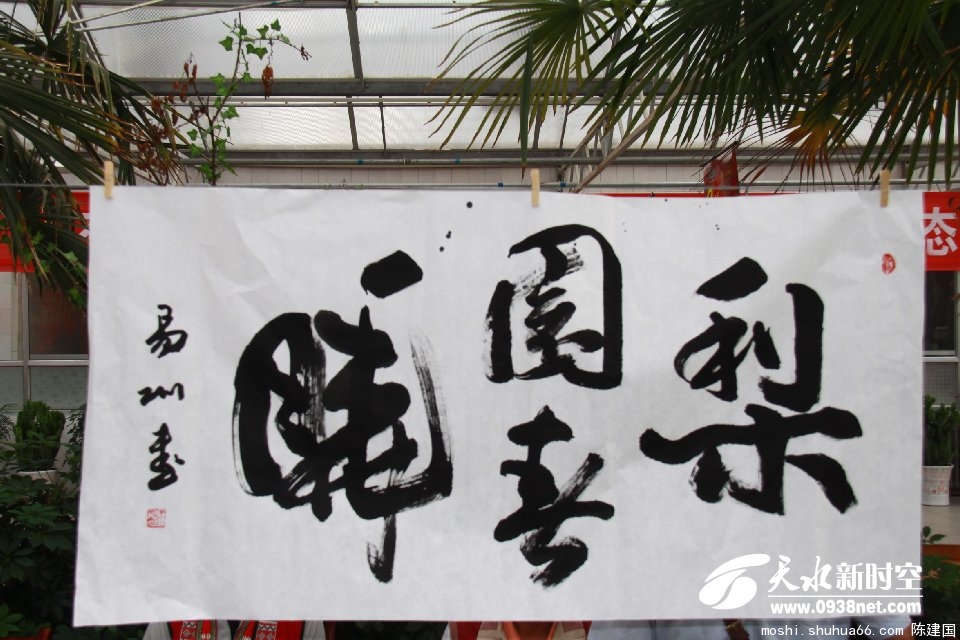 梨
園春
易
書
态
天水新时空
www.0938net.com
moshi.shuhua66.com 陈建国